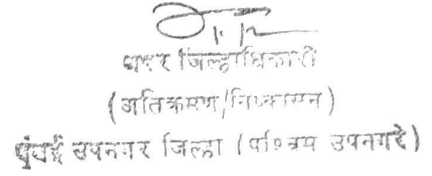 अपर जिल्हाधिकारी
(अतिक्रमण/निष्कासन)
मुंबई उपनगर जिल्हा (पश्चिम उपनगरे)